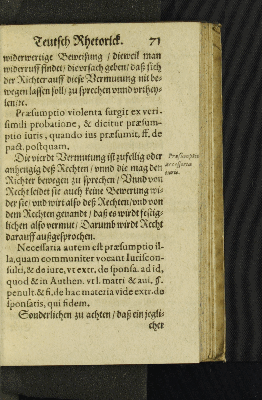 Teutsch Rhetorick. 71
widerwertige Beweisung / dieweil man
widerruff findet / die vrsach geben / daß sich
der Richter auff diese Vermutung nit be-
wegen lassen soll / zu sprechen vnnd vrthey-
len / ꝛc.
Præsumptio violenta surgit ex veri-
simili probatione, & dicitur præsum-
ptio iuris, quando ius præsumit. ff. de
pact. postquam.
Die vierdt Vermutung ist zufellig oder
anhengig deß Rechten / vnnd die mag den
Richter bewegen zu sprechen / Vnnd von
Recht leidet sie auch keine Bewerung wi-
der sie / vnd wirt also deß Rechten / vnd von
dem Rechten genandt / daß es würdt festig-
lichen also vermut / Darumb wirdt Recht
darauff außgesprochen.
Præsumptio
necessaria
Necessaria autem est præsumptio il-
la, quam communiter vocant Iuriscon-
sulti, & de iure, vt extr. de sponsa. ad id,
quod & in Authen. vt l. matri & aui, §.
penult. & fi. de hac materia vide extr. de
sponsatis, qui fidem.
Sonderlichen zu achten / daß ein jegli-
cher